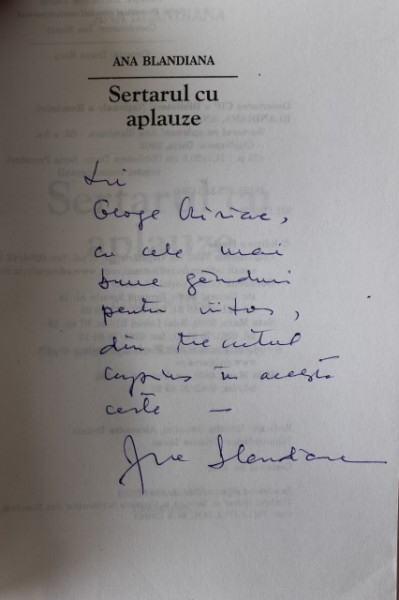 ANA BLANDIANA
Sertarul cu
aplauze
Lui
George Chiriac,
cu cele mai
bune gânduri
pentru viitor,
din trecutul
cuprins în această
carte —
Ana Blandiana